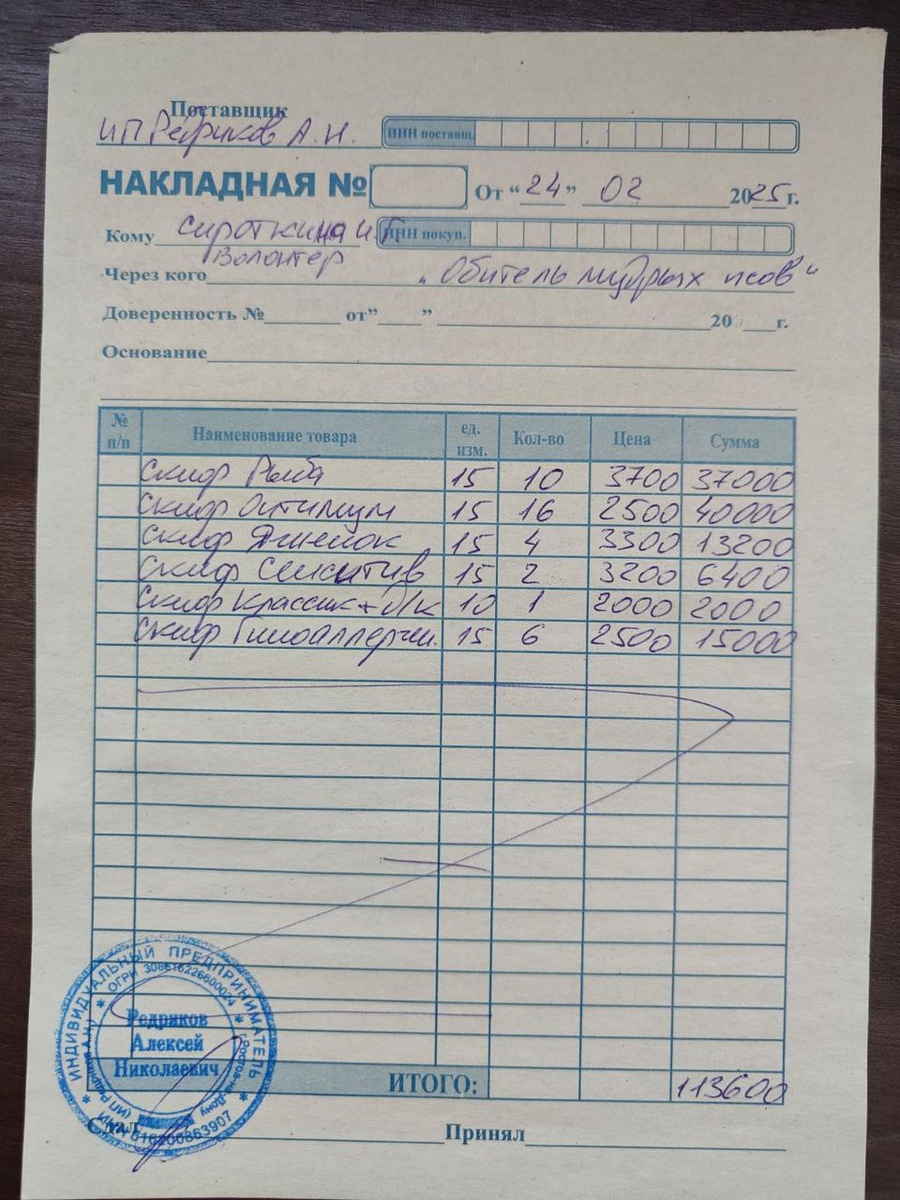 Поставщик
ИП Редриков А. Н. ИНН поставщ.
НАКЛАДНАЯ № От "24" 02 2025 г.
Кому Сироткина И. ИНН покуп.
Волонтер
Через кого "Обитель мудрых псов"
Доверенность № от" " 20 г.
Основание
№ п/п Наименование товара ед. изм. Кол-во Цена Сумма
Скиф Рыба 15 10 3700 37000
Скиф Оптимум 15 16 2500 40000
Скиф Ягненок 15 4 3300 13200
Скиф Сенситив 15 2 3200 6400
Скиф Классик + б/к 10 1 2000 2000
Скиф Гипоаллерген. 15 6 2500 15000
ИНДИВИДУАЛЬНЫЙ ПРЕДПРИНИМАТЕЛЬ
Редриков
Алексей
Николаевич
(ИП Редриков А.Н.)
г. Ростов-на-Дону
ИТОГО: 113600
Сдал Принял